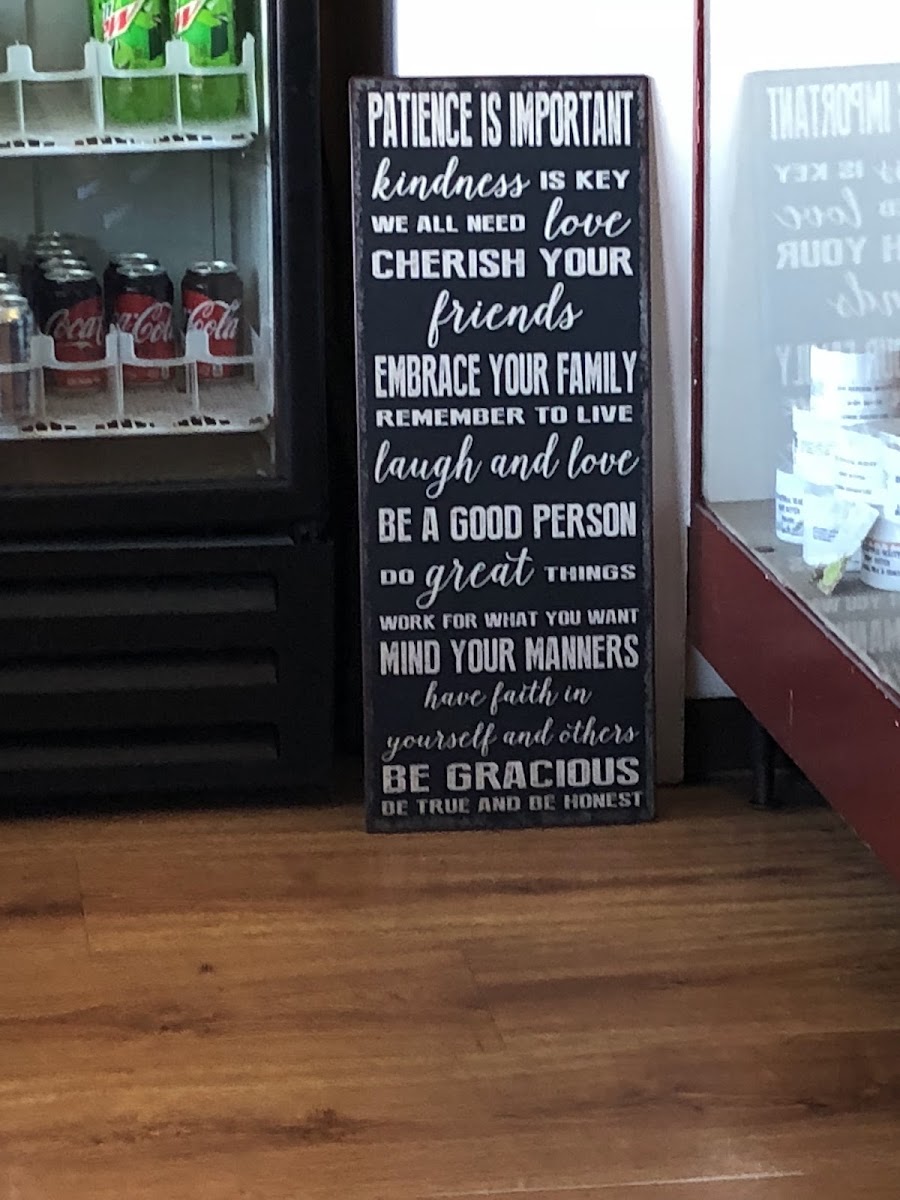 PATIENCE IS IMPORTANT
kindness IS KEY
WE ALL NEED love
CHERISH YOUR
friends
EMBRACE YOUR FAMILY
REMEMBER TO LIVE
laugh and love
BE A GOOD PERSON
DO great THINGS
WORK FOR WHAT YOU WANT
MIND YOUR MANNERS
have faith in
yourself and others
BE GRACIOUS
BE TRUE AND BE HONEST
Coca
Coca-Cola
Cola